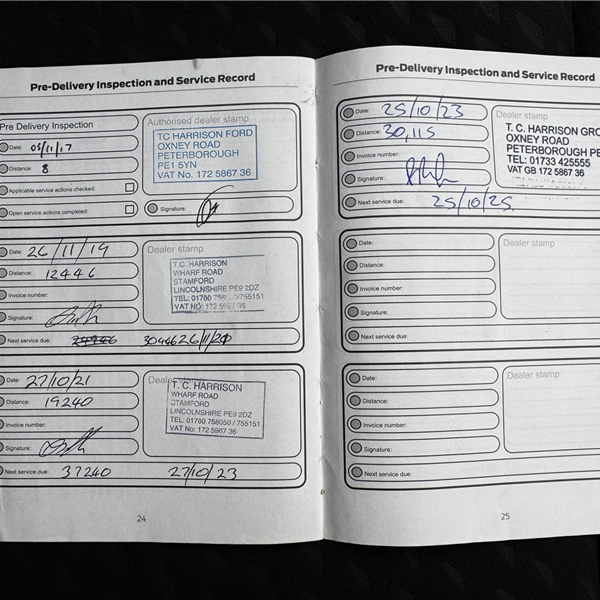 Pre-Delivery Inspection and Service Record
Pre Delivery Inspection
Date: 05/11/17
Distance: 8
Applicable service actions checked:
Open service actions completed:
Authorised dealer stamp
TC HARRISON FORD
OXNEY ROAD
PETERBOROUGH
PE1 5YN
VAT No. 172 5867 36
Signature:
Date: 26/11/19
Distance: 12446
Invoice number:
Signature:
Next service due: 30446 26/11/21
Dealer stamp
T.C. HARRISON
WHARF ROAD
STAMFORD
LINCOLNSHIRE PE9 2DZ
TEL: 01780 /755151
VAT NO: 172 5967 36
Date: 27/10/21
Distance: 19240
Invoice number:
Signature:
Next service due: 37240 27/10/23
Dealer stamp
T. C. HARRISON
WHARF ROAD
STAMFORD
LINCOLNSHIRE PE9 2DZ
TEL: 01780 758050 / 755151
VAT No: 172 5967 36
24
Pre-Delivery Inspection and Service Record
Date: 25/10/23
Distance: 30,115
Invoice number:
Signature:
Next service due: 25/10/25.
Dealer stamp
T. C. HARRISON GRO
OXNEY ROAD
PETERBOROUGH PE
TEL: 01733 425555
VAT GB 172 5867 36
Date:
Distance:
Invoice number:
Signature:
Next service due:
Dealer stamp
Date:
Distance:
Invoice number:
Signature:
Next service due:
Dealer stamp
25